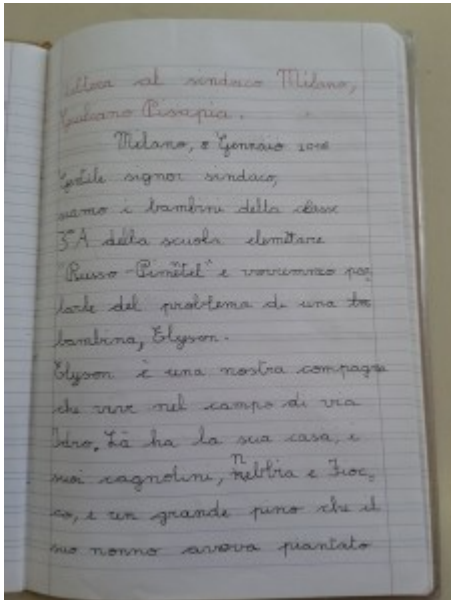 Lettera al sindaco Milano,
Giuliano Pisapia.
Milano, 8 Gennaio
Gentile signor sindaco,
siamo i bambini della classe
3ª A della scuola elemtare
"Russo-Pimentel" e vorremmo par
larle del problema di una
bambina, Elyson.
Elyson è una nostra compagna
che vive nel campo di via
Idro. Là ha la sua casa, i
suoi cagnolini, nebbia e Fioc
co, e un grande pino che il
suo nonno aveva piantato